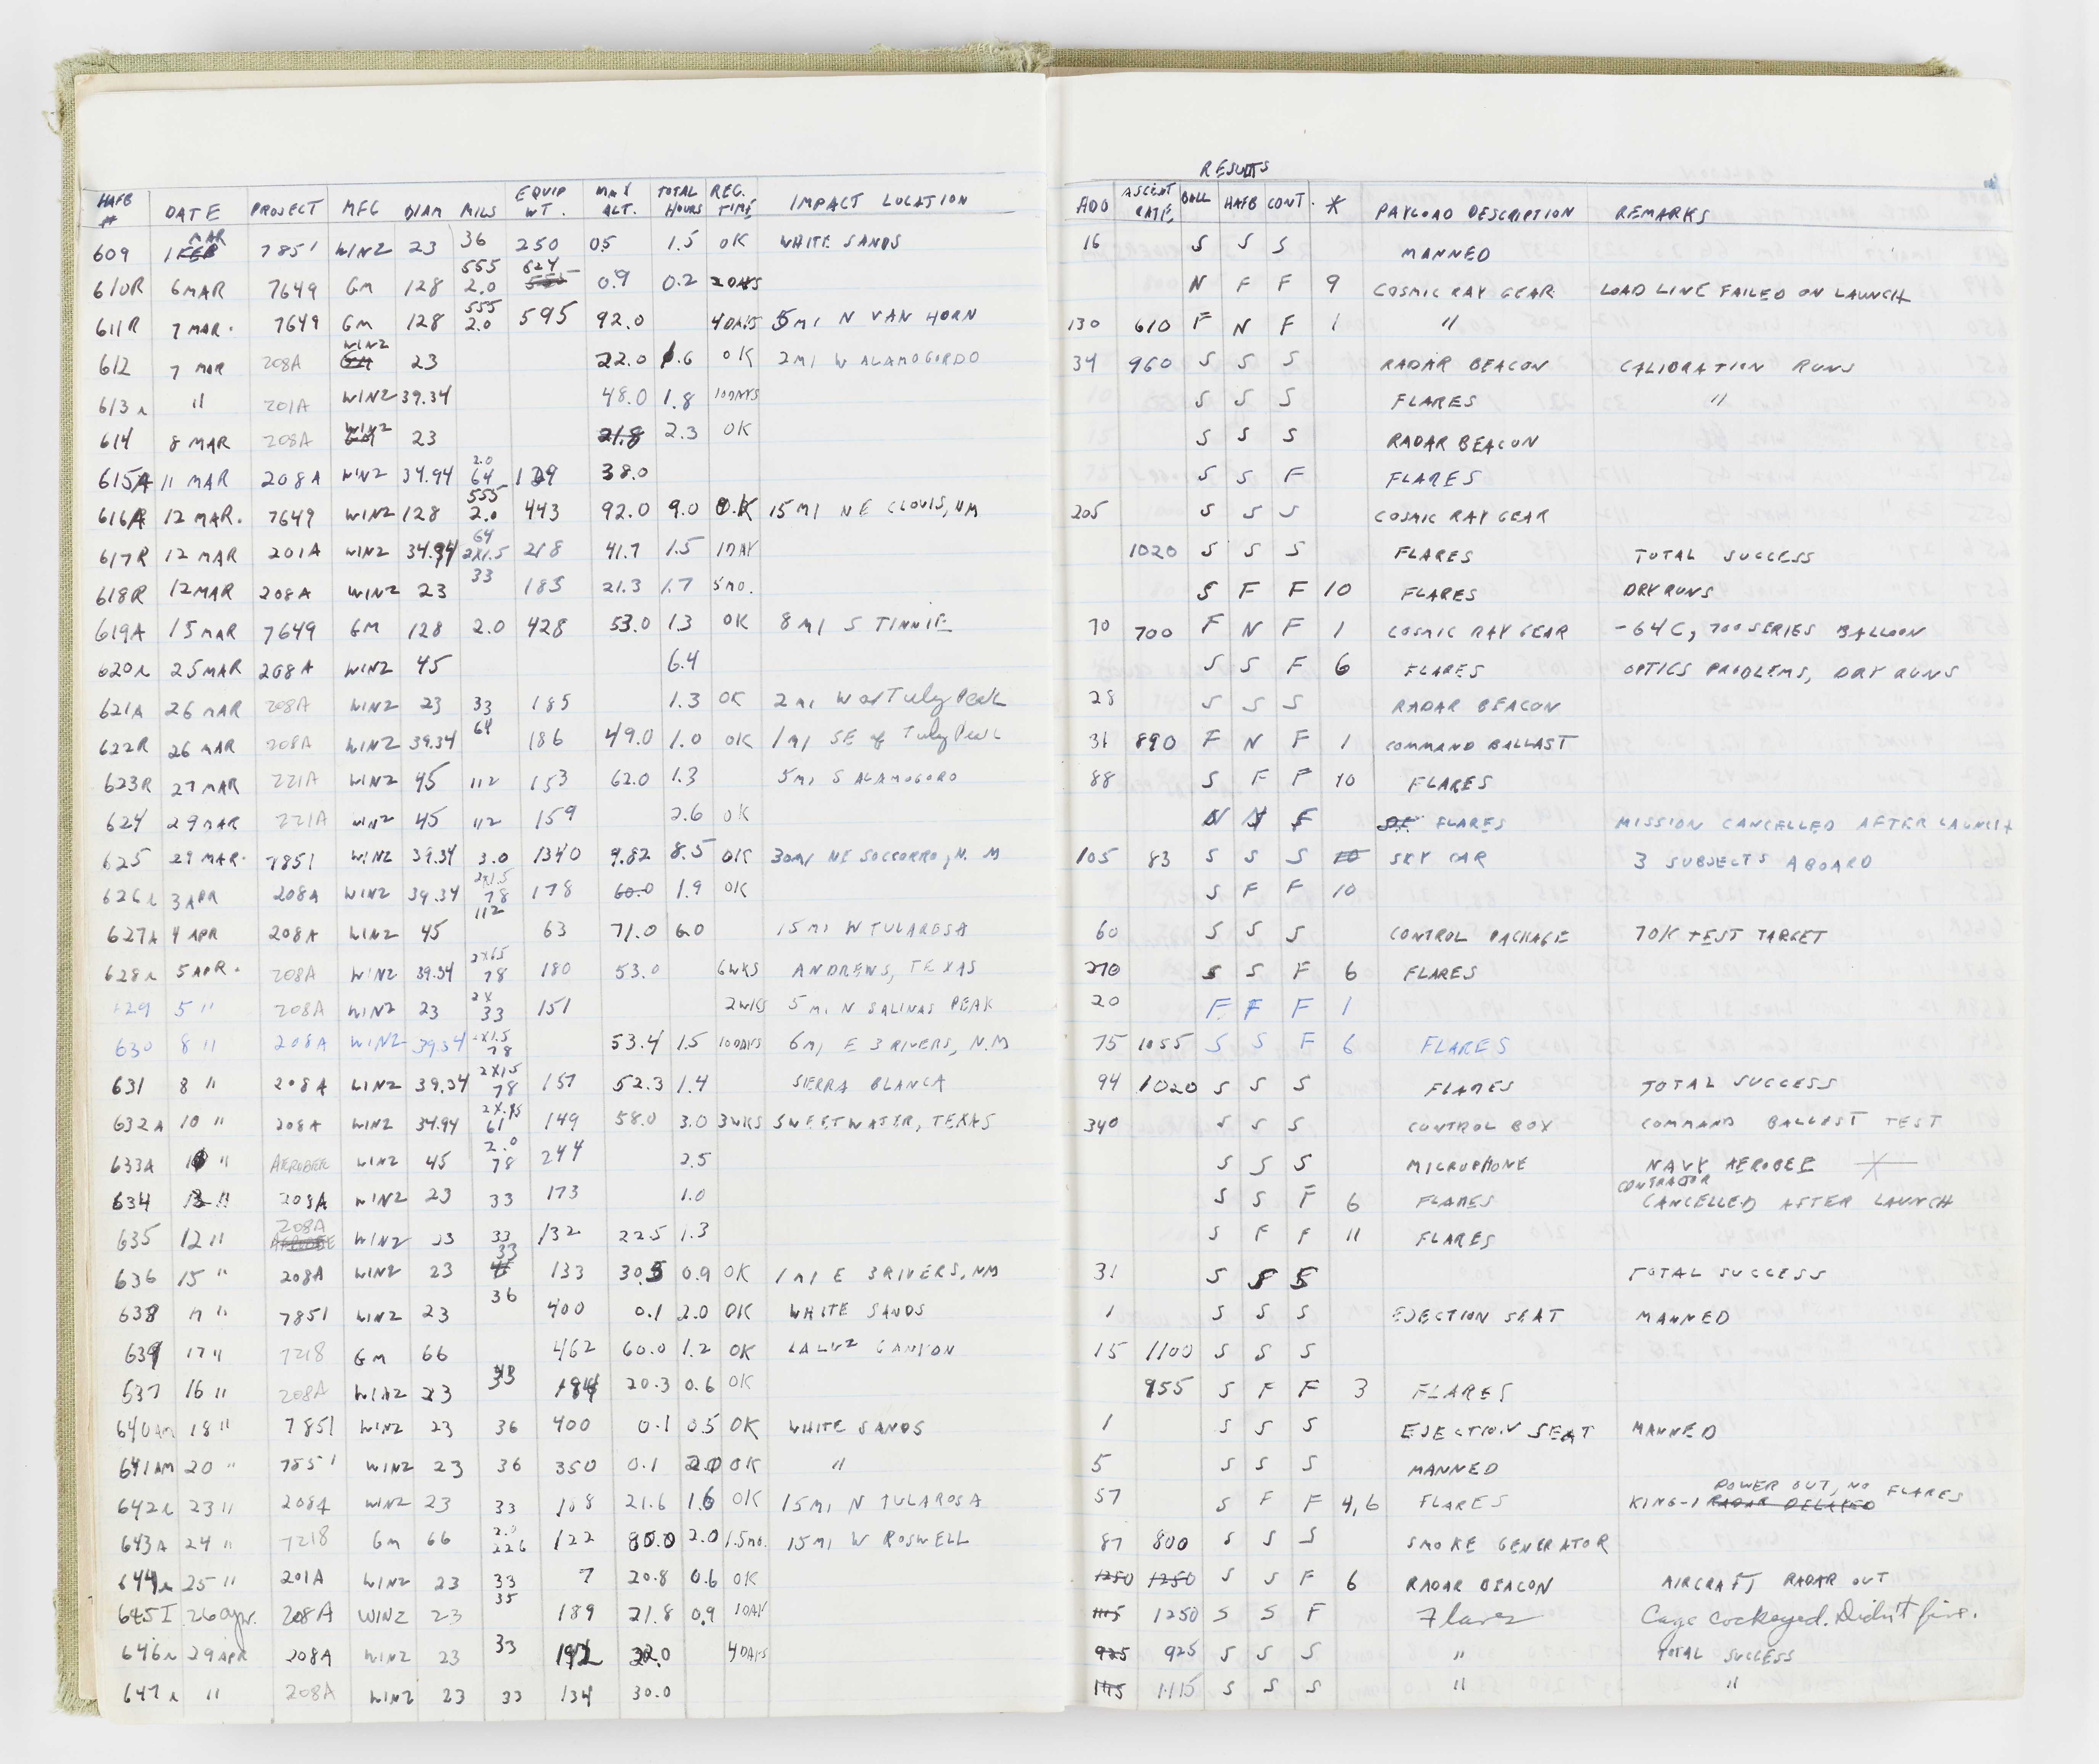 RESULTS
HAFB # DATE PROJECT MFG DIAM MILS EQUIP WT. MAX ALT. TOTAL HOURS REC. TIME IMPACT LOCATION ADO ASCENT RATE BALL HAFB CONT. * PAYLOAD DESCRIPTION REMARKS
609 1 MAR 7851 WINZ 23 36 250 05 1.5 OK WHITE SANDS 16 S S S MANNED
610R 6 MAR 7649 GM 128 555 2.0 624 0.9 0.2 2DAYS N F F 9 COSMIC RAY GEAR LOAD LINE FAILED ON LAUNCH
611R 7 MAR. 7649 GM 128 555 2.0 595 92.0 4DAYS 5MI N VAN HORN 130 610 F N F 1 "
612 7 MAR 208A WINZ 23 22.0 1.6 OK 2MI W ALAMOGORDO 34 960 S S S RADAR BEACON CALIBRATION RUNS
613r " 201A WINZ 39.34 48.0 1.8 10DAYS S S S FLARES "
614 8 MAR 208A WINZ 23 21.8 2.3 OK S S S RADAR BEACON
615A 11 MAR 208A WINZ 34.94 2.0 64 129 38.0 S S F FLARES
616A 12 MAR. 7649 WINZ 128 555 2.0 443 92.0 9.0 O.K 15MI NE CLOVIS, NM 205 S S S COSMIC RAY GEAR
617R 12 MAR 201A WINZ 34.94 64 2X1.5 218 41.7 1.5 1DAY 1020 S S S FLARES TOTAL SUCCESS
618R 12MAR 208A WINZ 23 33 183 21.3 1.7 5MO. S F F 10 FLARES DRY RUNS
619A 15 MAR 7649 GM 128 2.0 428 53.0 1.3 OK 8 MI S TINNIE 70 700 F N F 1 COSMIC RAY GEAR -64C, 700 SERIES BALLOON
620r 25 MAR 208A WINZ 45 6.4 S S F 6 FLARES OPTICS PROBLEMS, DRY RUNS
621A 26 MAR 208A WINZ 23 33 185 1.3 OK 2 mi W of Tuly Peak 28 S S S RADAR BEACON
622R 26 MAR 208A WINZ 39.34 64 186 49.0 1.0 OK 1 mi SE of Tuly Peak 31 890 F N F 1 COMMAND BALLAST
623R 27 MAR 221A WINZ 45 112 153 62.0 1.3 5MI S ALAMOGORO 88 S F F 10 FLARES
624 29 MAR 221A WINZ 45 112 159 2.6 OK N N F FLARES MISSION CANCELLED AFTER LAUNCH
625 29 MAR. 7851 WINZ 39.34 3.0 1340 9.82 8.5 OK 30MI NE SOCCORRO, N.M 105 83 S S S SKY CAR 3 SUBJECTS ABOARD
626r 3 APR 208A WINZ 39.34 2X1.5 78 178 60.0 1.9 OK S F F 10
627A 4 APR 208A WINZ 45 112 63 71.0 6.0 15 MI W TULARESA 60 S S S CONTROL PACKAGE 70K TEST TARGET
628r 5 APR. 208A WINZ 39.34 78 180 53.0 6WKS ANDREWS, TEXAS 270 S S F 6 FLARES
629 5 " 208A WINZ 23 2X 33 151 2WKS 5 MI N SALINAS PEAK 20 F F F 1
630 8 " 208A WINZ 39.34 2X1.5 78 53.4 1.5 10DAYS 6MI E 3 RIVERS, N.M 75 1055 S S F 6 FLARES
631 8 " 208A WINZ 39.34 2X1.5 78 157 52.3 1.4 SIERRA BLANCA 94 1020 S S S FLARES TOTAL SUCCESS
632A 10 " 208A WINZ 34.94 61 149 58.0 3.0 3WKS SWEETWATER, TEXAS 340 S S S CONTROL BOX COMMAND BALLAST TEST
633A " AEROBEE WINZ 45 2.0 78 244 2.5 S S S MICROPHONE NAVY AEROBEE
634 " 208A WINZ 23 33 173 1.0 S S F 6 FLARES CONTRACTOR CANCELLED AFTER LAUNCH
635 12 " 208A WINZ 23 33 132 22.5 1.3 S F F 11 FLARES
636 15 " 208A WINZ 23 33 133 30.5 0.9 OK 1 MI E 3RIVERS, NM 31 S S S TOTAL SUCCESS
638 17 " 7851 WINZ 23 36 400 0.1 2.0 OK WHITE SANDS 1 S S S EJECTION SEAT MANNED
639 17 " 7218 GM 66 462 60.0 1.2 OK LALUZ CANYON 15 1100 S S S
637 16 " 208A WINZ 23 33 184 20.3 0.6 OK 955 S F F 3 FLARES
640AM 18 " 7851 WINZ 23 36 400 0.1 0.5 OK WHITE SANDS 1 S S S EJECTION SEAT MANNED
641AM 20 " 7851 WINZ 23 36 350 0.1 2.0 OK " 5 S S S MANNED
642r 23 " 208A WINZ 23 33 168 21.6 1.6 OK 15MI N TULAROSA 57 S F F 4,6 FLARES KING-1 RADAR DELAYED POWER OUT, NO FLARES
643A 24 " 7218 GM 66 2.0 226 122 80.0 2.0 1.5MO. 15MI W ROSWELL 87 800 S S S SMOKE GENERATOR
644r 25 " 201A WINZ 23 33 7 20.8 0.6 OK 1250 1250 S S F 6 RADAR BEACON AIRCRAFT RADAR OUT
645I 26 apr. 208A WINZ 23 35 189 21.8 0.9 1DAY 1115 1250 S S F Flares Cage cockeyed. Didn't fire.
646r 29 APR 208A WINZ 23 33 192 22.0 4DAYS 925 925 S S S " TOTAL SUCCESS
647r " 208A WINZ 23 33 134 30.0 1115 1115 S S S " "